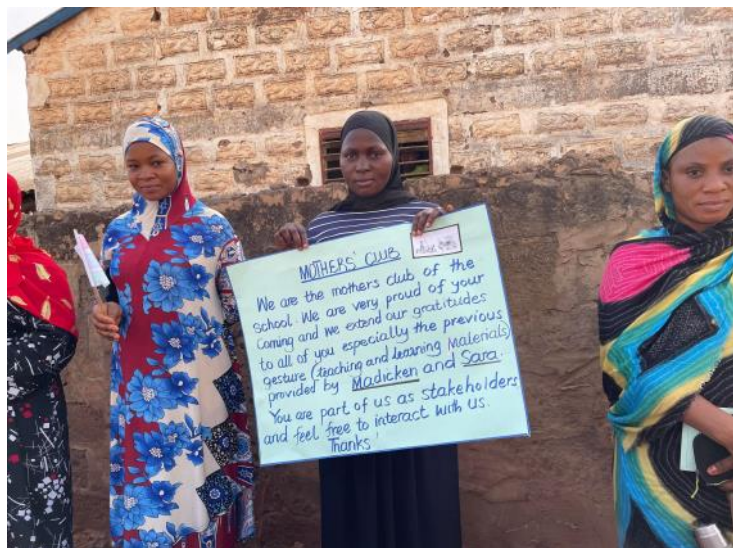 MOTHERS' CLUB
We are the mothers club of the
school. We are very proud of your
coming and we extend our gratitudes
to all of you especially the previous
gesture (teaching and learning Materials)
provided by Madicken and Sara.
You are part of us as stakeholders
and feel free to interact with us.
Thanks!